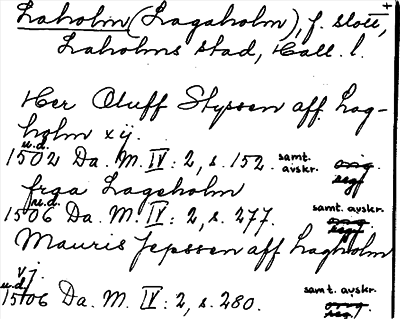 Laholm (Lagaholm), f. slott,
Laholms stad, Hall. l.
Her Oluff Styssen aff Lag-
holm xij.
u.d.
1502 Da. M. IV: 2, s. 152. samt. avskr. orig. segf
frga Lageholm
u.d.
1506 Da. M. IV: 2, s. 277. samt. avskr. orig. segf
Mauris Jepssen aff Laghholm
vj.
u.d.
1506 Da. M. IV: 2, s. 280. samt. avskr. orig. segf.